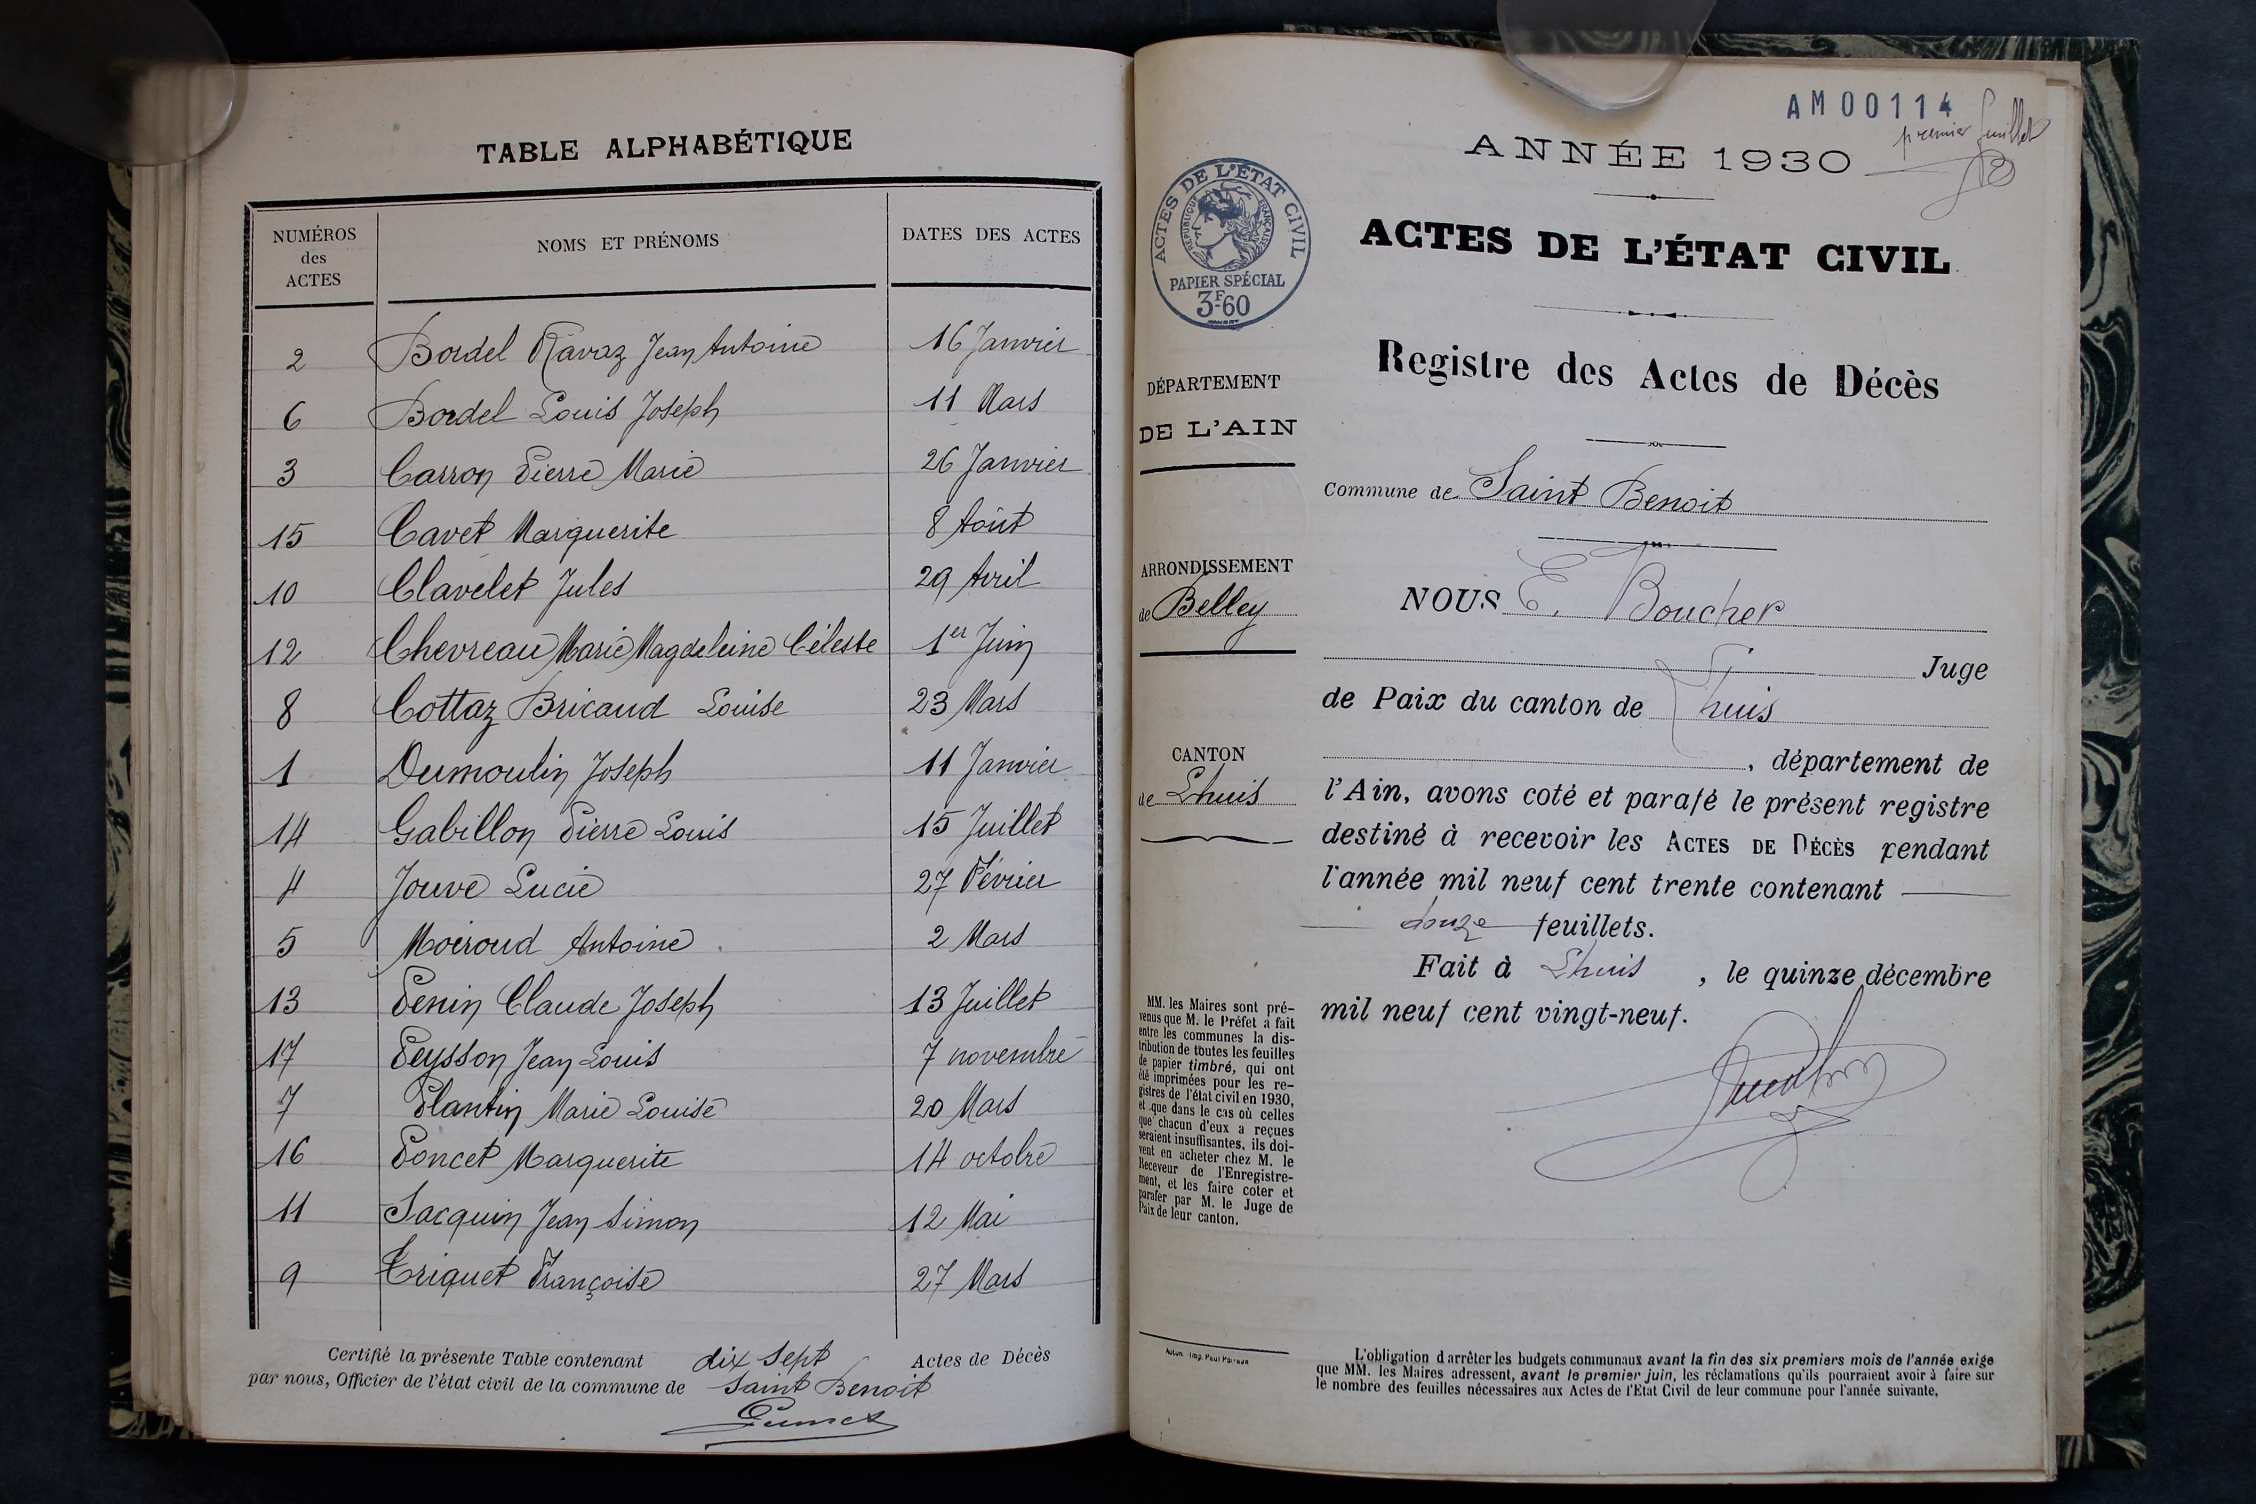 TABLE ALPHABÉTIQUE
NUMÉROS des ACTES
NOMS ET PRÉNOMS
DATES DES ACTES
2 Bordel Ravaz Jean Antoine 16 Janvier
6 Bordel Louis Joseph 11 Mars
3 Carron Pierre Marie 26 Janvier
15 Cavet Marguerite 8 Août
10 Clavelet Jules 29 Avril
12 Chevreau Marie Magdeleine Céleste 1er Juin
8 Cottaz Bricaud Louise 23 Mars
1 Dumoulin Joseph 11 Janvier
14 Gabillon Pierre Louis 15 Juillet
4 Jouve Lucie 27 Février
5 Moiroud Antoine 2 Mars
13 Penin Claude Joseph 13 Juillet
17 Peysson Jean Louis 7 novembre
7 Plantin Marie Louise 20 Mars
16 Poncet Marguerite 14 octobre
11 Sacquin Jean Simon 12 Mai
9 Triquet Françoise 27 Mars
Certifié la présente Table contenant dix sept Actes de Décès
par nous, Officier de l'état civil de la commune de Saint Benoit
AM00114
premier feuillet
ANNÉE 1930
ACTES DE L'ÉTAT CIVIL
RÉPUBLIQUE FRANÇAISE
PAPIER SPÉCIAL
3F60
ACTES DE L'ÉTAT CIVIL
Registre des Actes de Décès
DÉPARTEMENT
DE L'AIN
Commune de Saint Benoit
ARRONDISSEMENT
de Belley
NOUS E. Boucher
Juge
de Paix du canton de Lhuis
CANTON
de Lhuis
, département de
l'Ain, avons coté et parafé le présent registre
destiné à recevoir les ACTES DE DÉCÈS pendant
l'année mil neuf cent trente contenant
douze feuillets.
Fait à Lhuis , le quinze décembre
mil neuf cent vingt-neuf.
MM. les Maires sont pré-
venus que M. le Préfet a fait
entre les communes la dis-
tribution de toutes les feuilles
de papier timbré, qui ont
été imprimées pour les re-
gistres de l'état civil en 1930,
et que dans le cas où celles
que chacun d'eux a reçues
seraient insuffisantes, ils doi-
vent en acheter chez M. le
Receveur de l'Enregistre-
ment, et les faire coter et
parafer par M. le Juge de
Paix de leur canton.
L'obligation d'arrêter les budgets communaux avant la fin des six premiers mois de l'année exige
que MM. les Maires adressent, avant le premier juin, les réclamations qu'ils pourraient avoir à faire sur
le nombre des feuilles nécessaires aux Actes de l'État Civil de leur commune pour l'année suivante.